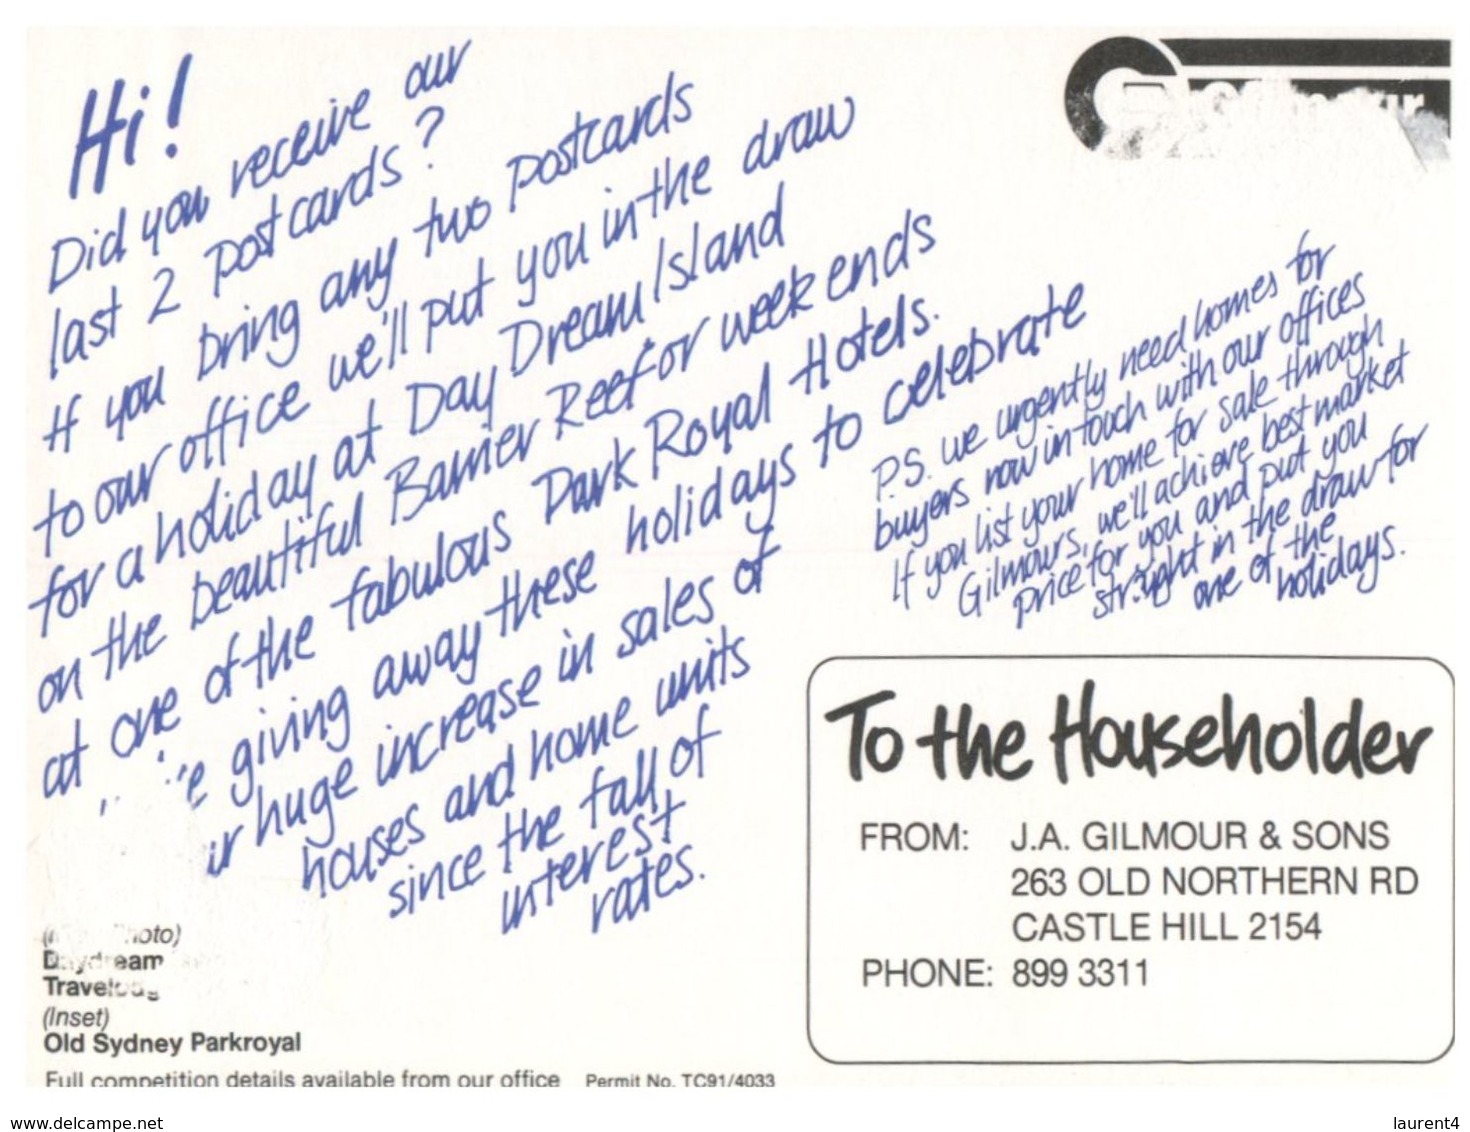 Hi!
Did you receive our
last 2 postcards?
If you bring any two postcards
to our office we'll put you in the draw
for a holiday at Day Dream Island
on the beautiful Barrier Reef or weekends
at one of the fabulous Park Royal Hotels.
giving away these holidays to celebrate
huge increase in sales of
houses and home units
since the fall of
interest
rates.
P.S. we urgently need homes for
buyers now in touch with our offices
If you list your home for sale through
Gilmours, we'll achieve best market
price for you and put you
straight in the draw for
one of the
holidays.
To the Householder
FROM: J.A. GILMOUR & SONS
263 OLD NORTHERN RD
CASTLE HILL 2154
PHONE: 899 3311
Daydream
Travelodg
(Inset)
Old Sydney Parkroyal
Full competition details available from our office Permit No. TC91/4033
delcampe.net
laurent4